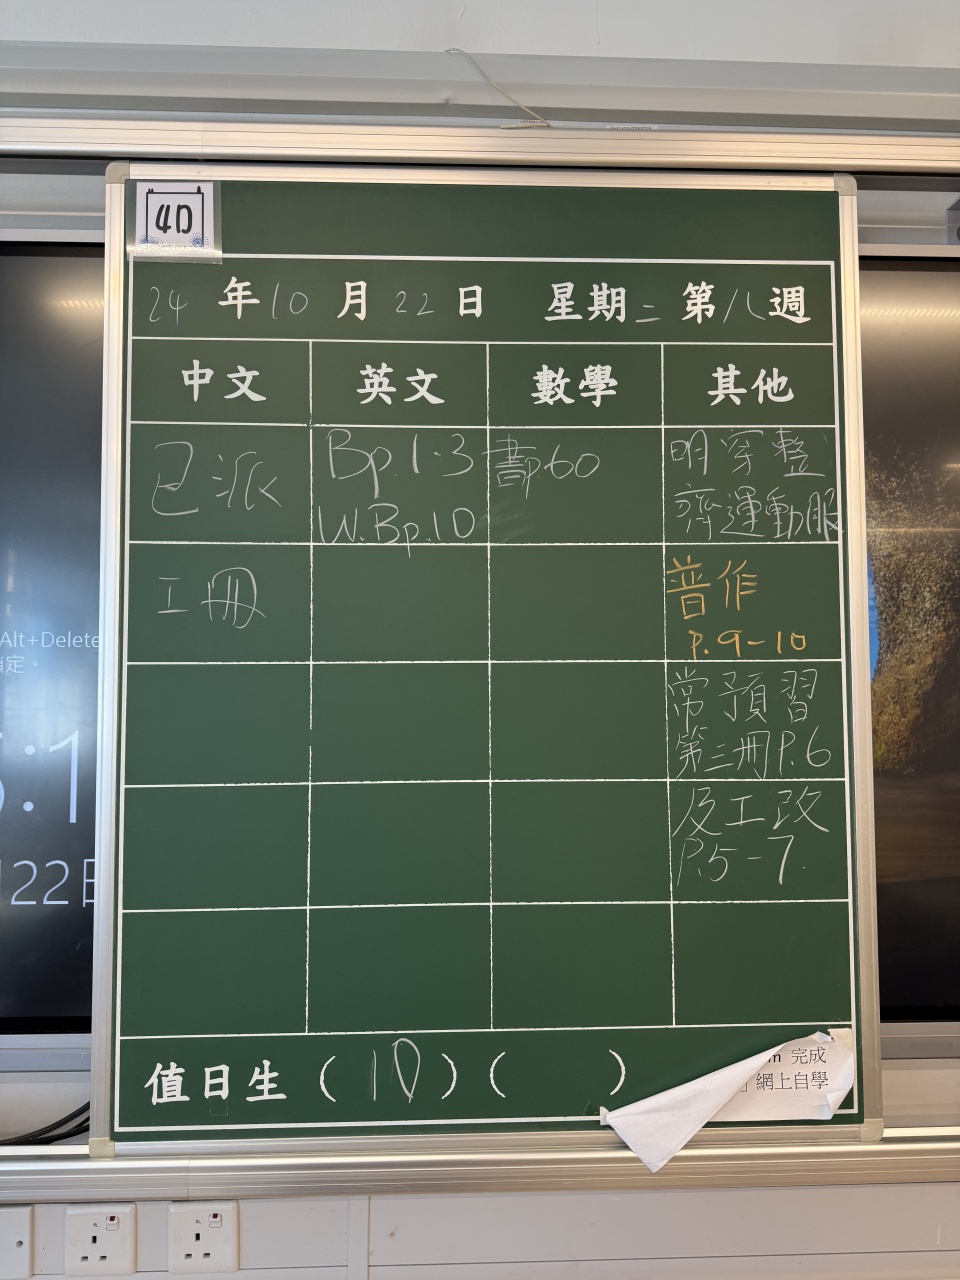 4D
24 年 10 月 22 日 星期二 第八週
中文 英文 數學 其他
已派
Bp.1-3
W.Bp.10
書p.60
明穿整
齊運動服
工冊
普作
P.9-10
常預習
第三冊P.6
及工改
P.5-7.
值日生 (10) ( )
m 完成
網上自學
Alt+Delete
定。
:1
22日